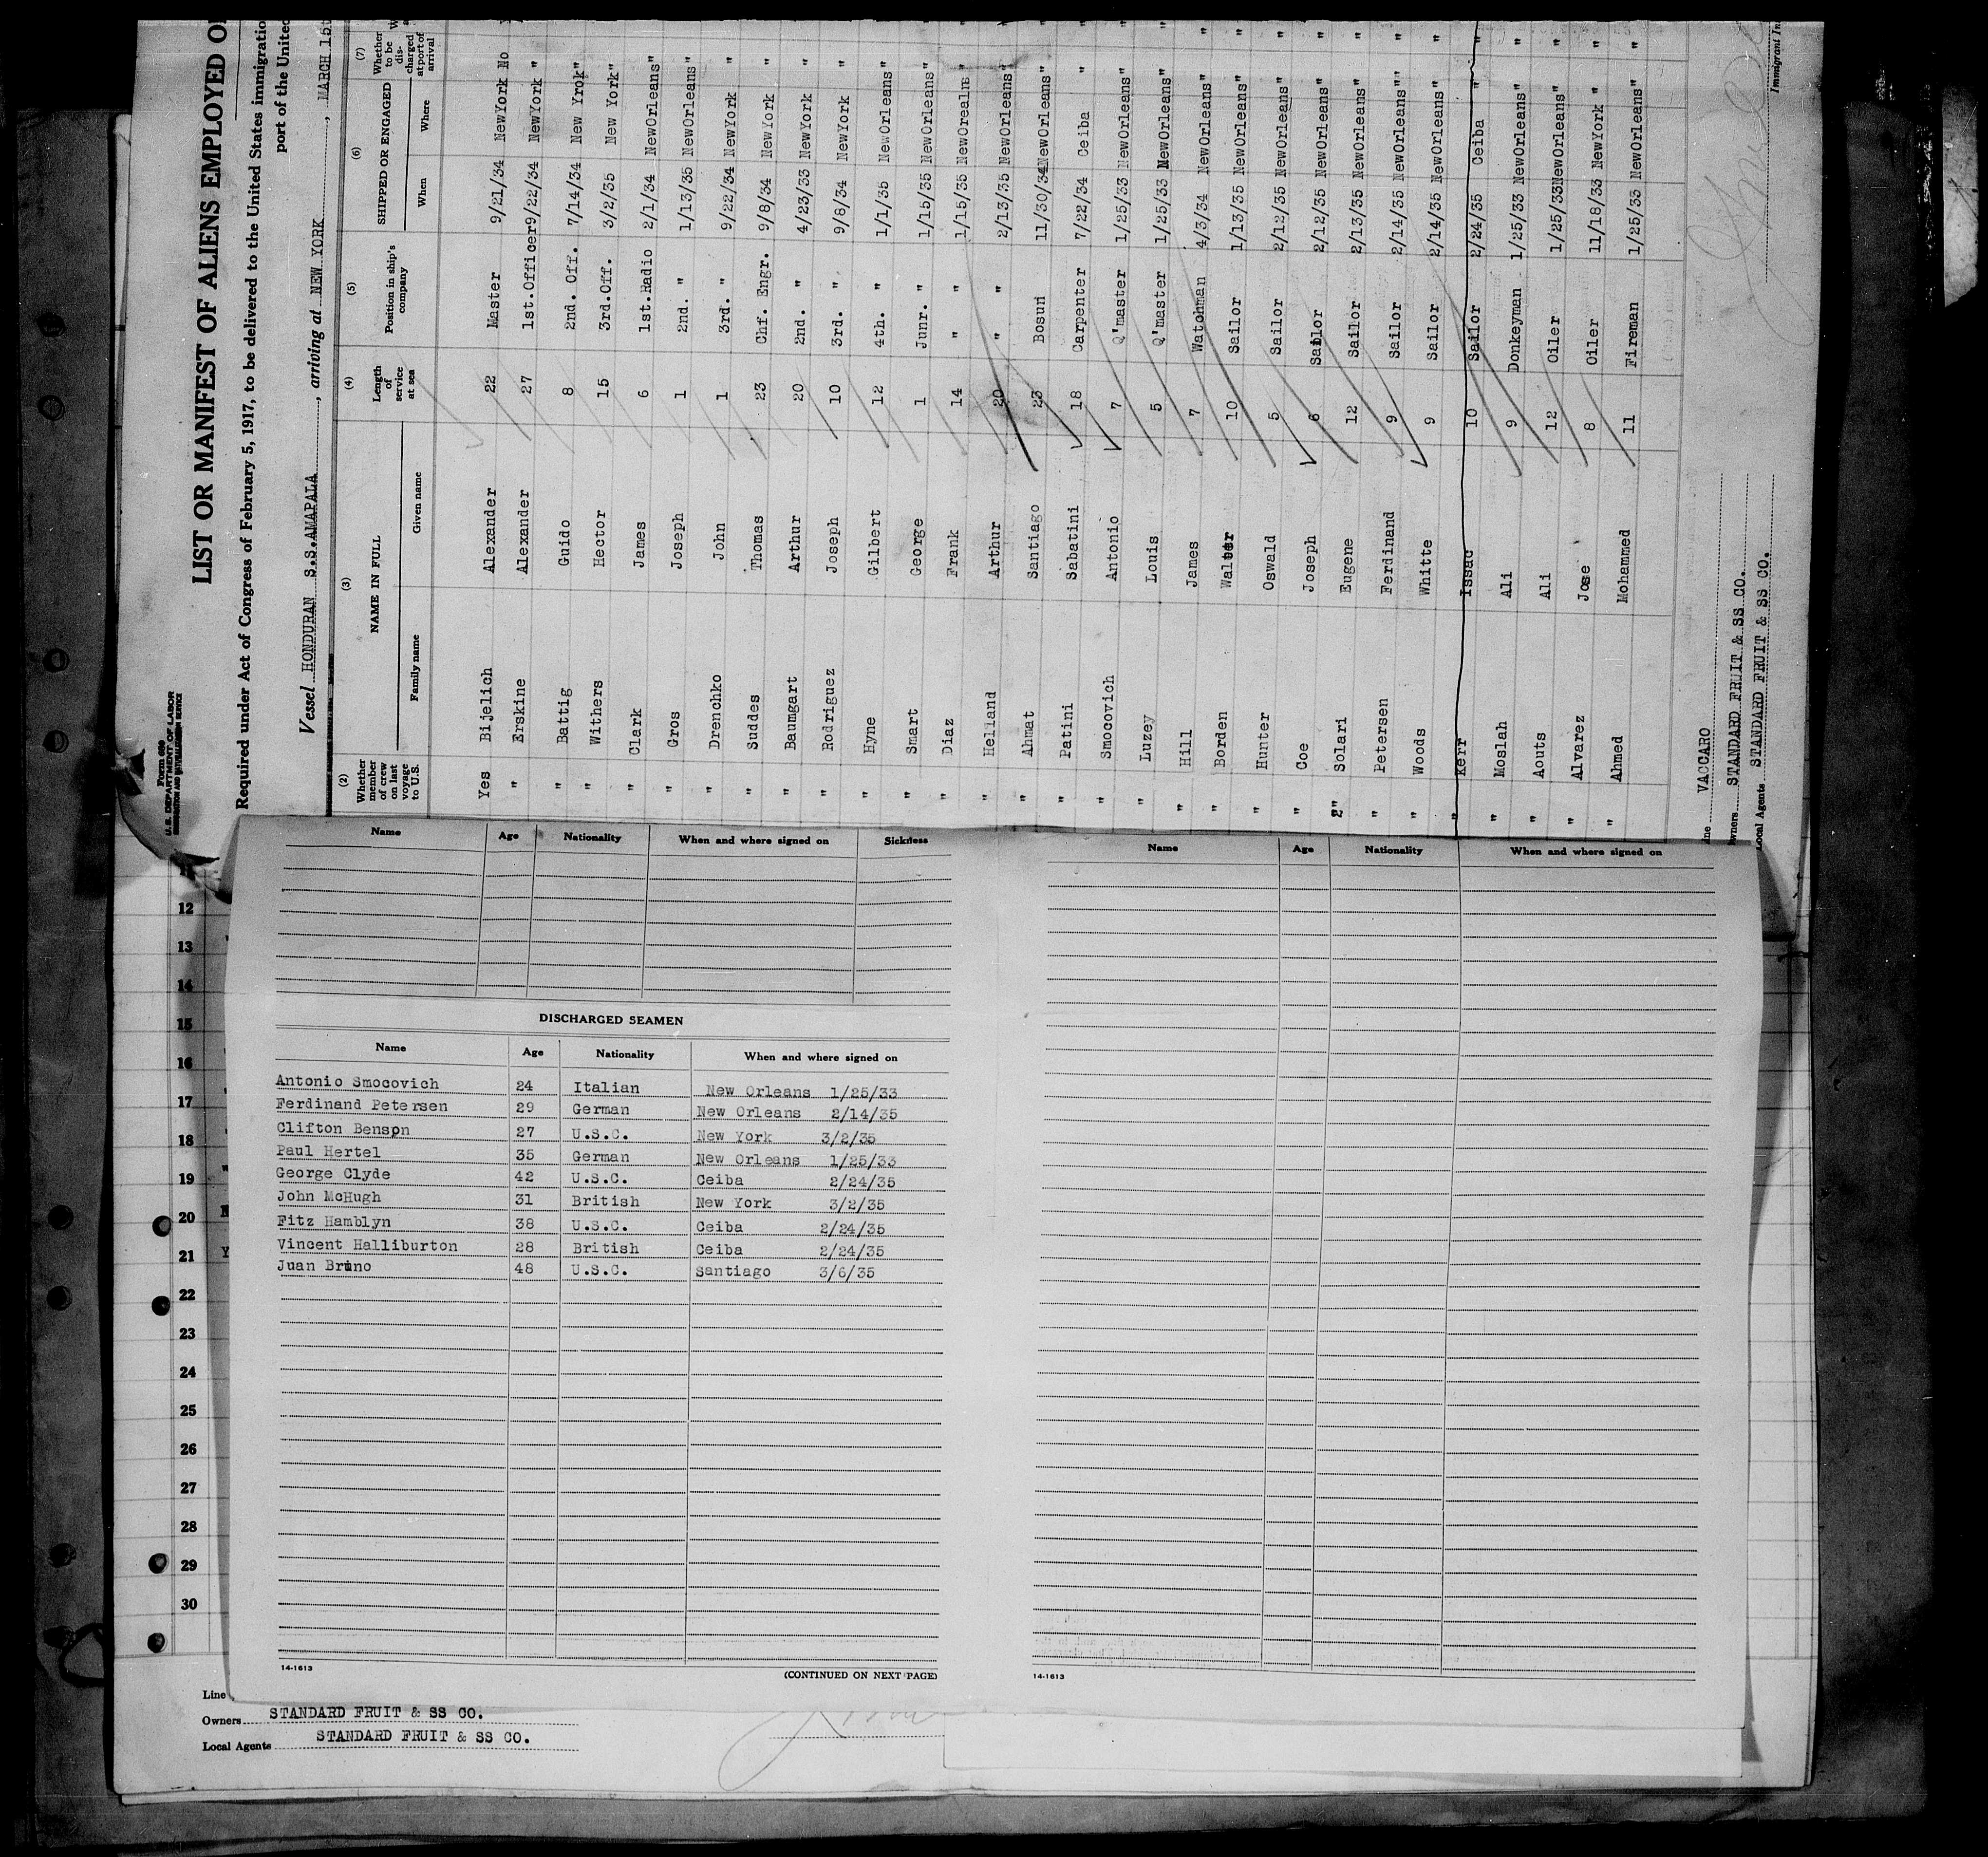 Form 689
U. S. DEPARTMENT OF LABOR
IMMIGRATION AND NATURALIZATION SERVICE
LIST OR MANIFEST OF ALIENS EMPLOYED O
Required under Act of Congress of February 5, 1917, to be delivered to the United States immigratio
port of the United
Vessel HONDURAN S.S.AMAPALA, arriving at NEW YORK, MARCH 15t
(2) Whether member of crew on last voyage to U.S. (3) NAME IN FULL Family name Given name (4) Length of service at sea (5) Position in ship's company (6) SHIPPED OR ENGAGED When Where (7) Whether to be discharged at port of arrival
Yes Bijelich Alexander 22 Master 9/21/34 NewYork No
" Erskine Alexander 27 1st.Officer 9/22/34 NewYork "
" Battig Guido 8 2nd. Off. 7/14/34 New Yrok "
" Withers Hector 15 3rd.Off. 3/2/35 New York "
" Clark James 6 1st.Radio 2/1/34 NewOrleans "
" Gros Joseph 1 2nd. " 1/13/35 NewOrleans "
" Drenchko John 1 3rd. " 9/22/34 NewYork "
" Suddes Thomas 23 Chf. Engr. 9/8/34 NewYork "
" Baumgart Arthur 20 2nd. " 4/23/33 NewYork "
" Rodriguez Joseph 10 3rd. " 9/8/34 NewYork "
" Hyne Gilbert 12 4th. " 1/1/35 NewOrleans "
" Smart George 1 Junr. " 1/15/35 NewOrleans "
" Diaz Frank 14 " " 1/15/35 NewOrealns "
" Helland Arthur 20 " " 2/13/35 NewOrleans "
" Ahmat Santiago 23 Bosun 11/30/34 NewOrleans "
" Patini Sabatini 18 Carpenter 7/22/34 Ceiba "
" Smocovich Antonio 7 Q'master 1/25/33 NewOrleans "
" Luzey Louis 5 Q'master 1/25/33 NewOrleans "
" Hill James 7 Watchman 4/3/34 NewOrleans "
" Borden Walter 10 Sailor 1/13/35 NewOrleans "
" Hunter Oswald 5 Sailor 2/12/35 NewOrleans "
" Coe Joseph 6 Sailor 2/12/35 NewOrleans "
" Solari Eugene 12 Sailor 2/13/35 NewOrleans "
" Petersen Ferdinand 9 Sailor 2/14/35 NewOrleans "
" Woods Whitte 9 Sailor 2/14/35 NewOrleans "
" Kerr Issac 10 Sailor 2/24/35 Ceiba "
" Moslah Ali 9 Donkeyman 1/25/33 NewOrleans "
" Aouts Ali 12 Oiler 1/25/33 NewOrleans "
" Alvarez Jose 8 Oiler 11/18/33 NewYork "
" Ahmed Mohammed 11 Fireman 1/25/33 NewOrleans "
ne VACCARO
wners STANDARD FRUIT & SS CO.
Local Agents STANDARD FRUIT & SS CO.
Immigrant In
Name Age Nationality When and where signed on Sickness
Name Age Nationality When and where signed on
DISCHARGED SEAMEN
Name Age Nationality When and where signed on
Antonio Smocovich 24 Italian New Orleans 1/25/33
Ferdinand Petersen 29 German New Orleans 2/14/35
Clifton Benspn 27 U.S.C. New York 3/2/35
Paul Hertel 35 German New Orleans 1/25/33
George Clyde 42 U.S.C. Ceiba 2/24/35
John McHugh 31 British New York 3/2/35
Fitz Hamblyn 38 U.S.C. Ceiba 2/24/35
Vincent Halliburton 28 British Ceiba 2/24/35
Juan Bruno 48 U.S.C. Santiago 3/6/35
14-1613 (CONTINUED ON NEXT PAGE)
14-1613
12
13
14
15
16
17
18
19
20
21
22
23
24
25
26
27
28
29
30
Line
Owners STANDARD FRUIT & SS CO.
Local Agents STANDARD FRUIT & SS CO.